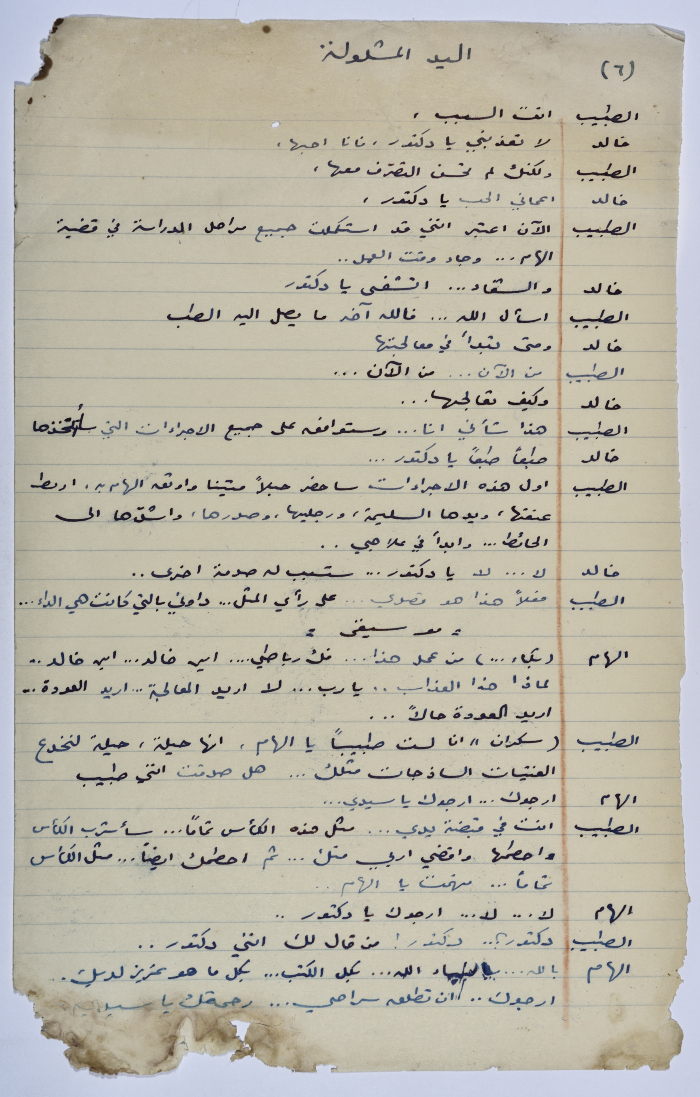 اليد المشلولة
(٦)
الطبيب انت السبب ،
خالد لا تعذبني يا دكتور ، فانا احبها ،
الطبيب ولكنك لم تحسن التصرف معها ،
خالد اعماني الحب يا دكتور ،
الطبيب الآن اعتبر انني قد استكملت جميع مراحل الدراسة في قضية
الهام ... وجاء وقت العمل ..
خالد والشفاء ... اتشفى يا دكتور
الطبيب اسأل الله ... فالله آخر ما يصل اليه الطب
خالد ومتى تبدأ في معالجتها
الطبيب من الآن ... من الآن ...
خالد وكيف تعالجها ...
الطبيب هذا شأني انا ... وستوافق على جميع الاجراءات التي سأتخذها
خالد طبعاً طبعاً يا دكتور ...
الطبيب اول هذه الاجراءات سأحضر حبلاً متينا واوثق الهام به ، اربط
عنقها ، ويدها السليمة ، ورجليها ، وصدرها ، واشدّها الى
الحائط ... وابدأ في علاجي ..
خالد لا ... لا يا دكتور ... ستسبب له صدمة اخرى ..
الطبيب فعلاً هذا هو قصدي ... على رأي المثل ... داوني بالتي كانت هي الداء ...
= موسيقى =
الهام (بكاء ...) من عمل هذا ... فك رباطي .... اين خالد ... اين خالد ..
لماذا هذا العذاب .. يا رب ... لا اريد المعالجة .. اريد العودة ..
اريد العودة حالاً ...
الطبيب ( سكران )) انا لست طبيباً يا الهام ، انها حيلة ، حيلة لنخدع
الفتيات الساذجات مثلك ... هل صدقت انني طبيب
الهام ارجوك ... ارجوك يا سيدي ...
الطبيب انت في قبضة يدي ... مثل هذه الكأس تماماً ... سأشرب الكأس
واحطمها واقضي اربي منك ... ثم احطمك ايضاً ... مثل الكأس
تماماً ... فهمت يا الهام ..
الهام لا ... لا ... ارجوك يا دكتور ..
الطبيب دكتور ؟.. دكتور ! من قال لك انني دكتور ..
الهام بالله ... الله ... بكل الكتب ... بكل ما هو عزيز لديك ..
ارجوك .. ان تطلق سراحي ... رحمتك يا